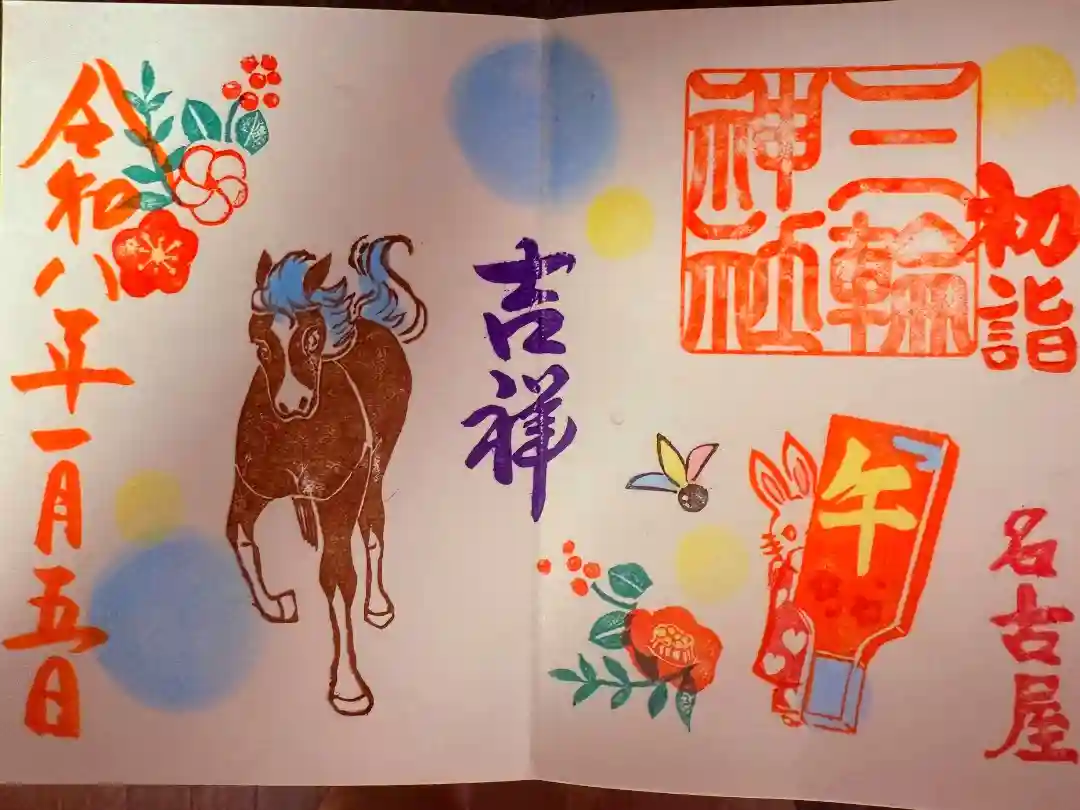 初詣
三輪
神社
午
名古屋
吉祥
令和八年一月五日